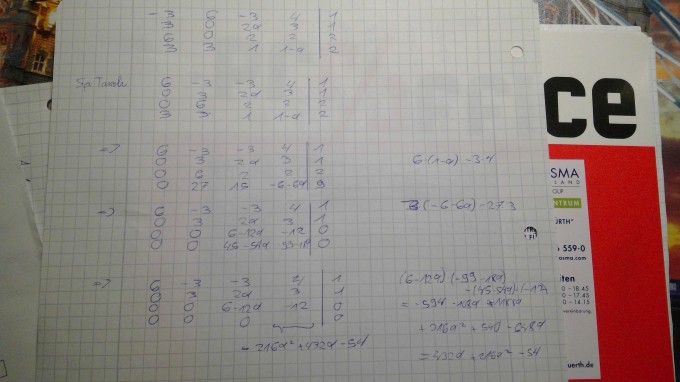 -3 6 -3 4 | 1
3 0 2a 3 | 1
6 0 2 2 | 2
3 3 1 1-a | 2
6 -3 -3 4 | 1
0 3 2a 3 | 1
0 6 2 2 | 2
3 3 1 1-a | 2
=> 6 -3 -3 4 | 1
0 3 2a 3 | 1
0 6 2 2 | 2
0 27 15 -6-6a 9
6·(1-a)-3·4
=> 6 -3 -3 4 | 1
0 3 2a 3 | 1
0 0 6-12a -12 0
0 0 45-54a -99-18a 0
3(-6-6a)-27·3
=> 6 -3 -3 4 1
0 3 2a 3 1
0 0 6-12a -12 0
0 0 0 0
-216a²+432a-54
(6-12a)·(-99-18a)
-(45-54a)·(-12)
= -594 -108a +1188a
+216a² +540 -648a
= 432a +216a² -54
ce
SMA
LAND
OUP
ENTRUM
ÜRTH"
559-0
asma.com
iten
0 - 18.45
0 - 17.45
0 - 14.15
uerth.de